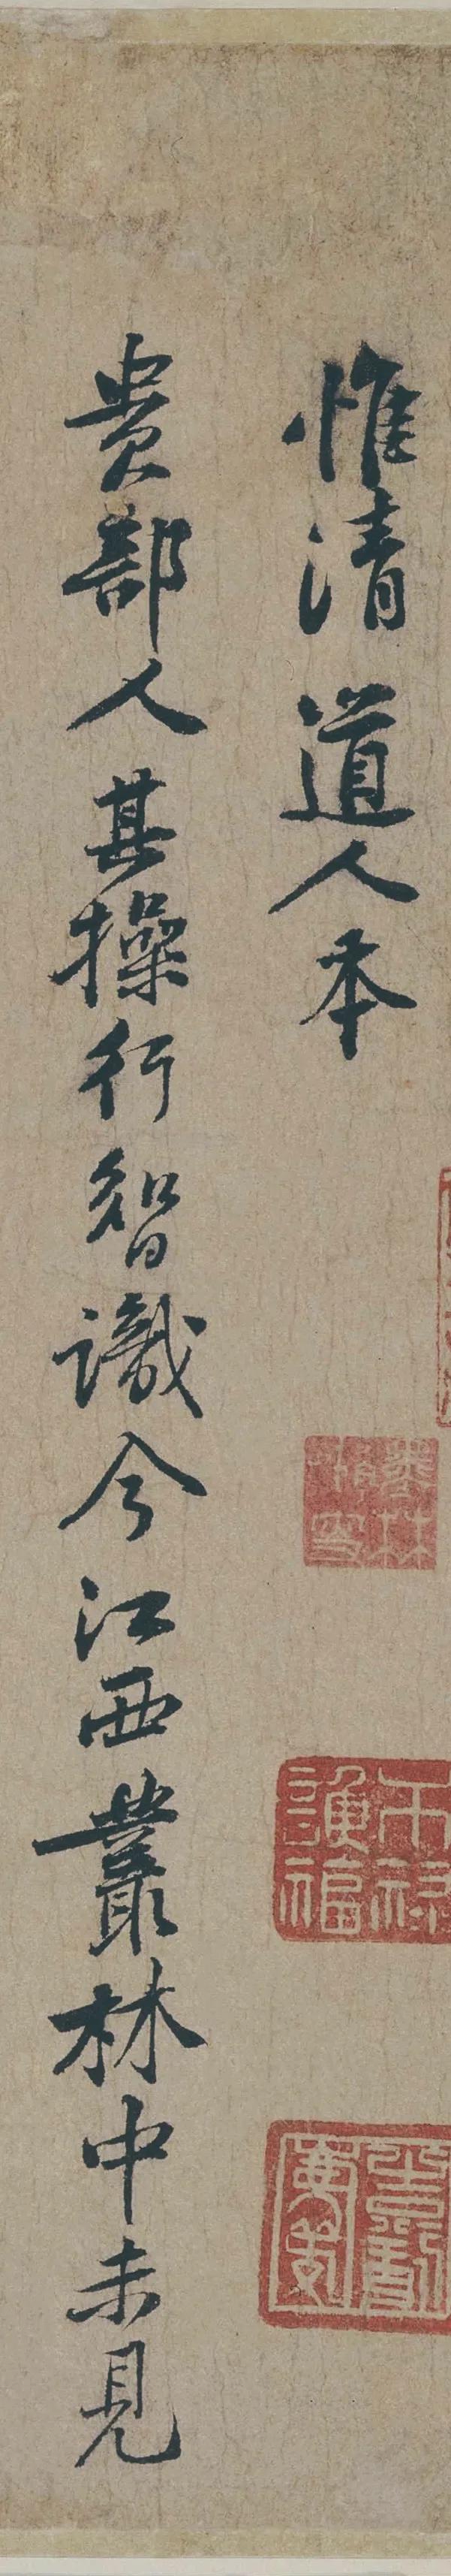 惟清道人本
贵部人其操行智識今江西叢林中未見